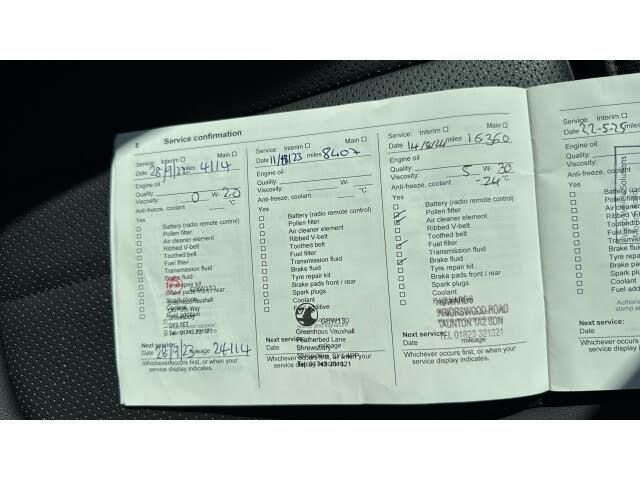 8 Service confirmation
Service: Interim Main
Date 28/9/22 miles 4114
Engine oil
Quality:
Viscosity: 0 W- 20
Anti-freeze, coolant °C
Yes
Battery (radio remote control)
Pollen filter
Air cleaner element
Ribbed V-belt
Toothed belt
Fuel filter
Transmission fluid
Brake fluid
Tyre repair kit
Brake pads front / rear
Spark plugs
Coolant
Fuel additive
Shrewsbury
Next service:
Date 28/9/23 mileage 24114
Whichever occurs first, or when your
service display indicates.
Service: Interim Main
Date miles 8407
Engine oil
Quality:
Viscosity: W-
Anti-freeze, coolant °C
Yes
Battery (radio remote control)
Pollen filter
Air cleaner element
Ribbed V-belt
Toothed belt
Fuel filter
Transmission fluid
Brake fluid
Tyre repair kit
Brake pads front / rear
Spark plugs
Coolant
Fuel additive
Greenhous Vauxhall
Featherbed Lane
Shrewsbury
Next service:
Date mileage
Whichever occurs first, or when your
service display indicates.
Service: Interim Main
Date 14/8/24 miles 16360
Engine oil
Quality:
Viscosity: 5 W- 30
Anti-freeze, coolant -24 °C
Yes
Battery (radio remote control)
Pollen filter
Air cleaner element
Ribbed V-belt
Toothed belt
Fuel filter
Transmission fluid
Brake fluid
Tyre repair kit
Brake pads front / rear
Spark plugs
Coolant
Fuel additive
PRIORSWOOD ROAD
TAUNTON TA2 8DN
TEL 01823 321321
Next service:
Date mileage
Whichever occurs first, or when your
service display indicates.
Service:
Date 22-5-25
Engine oil
Quality:
Viscosity:
Anti-freeze
Yes
Battery
Pollen
Air cleaner
Ribbed V
Toothed
Fuel filter
Brake fluid
Tyre repair
Brake pads
Spark plugs
Coolant
Fuel addi
stamp a
Next service:
Date
Whichever occurs
service di